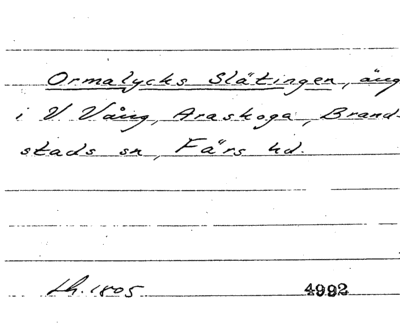 Ormalycks Slätingen, äng
i V Vång, Araskoga, Brand-
stads sn, Färs hd.
Lh. 1805 4992